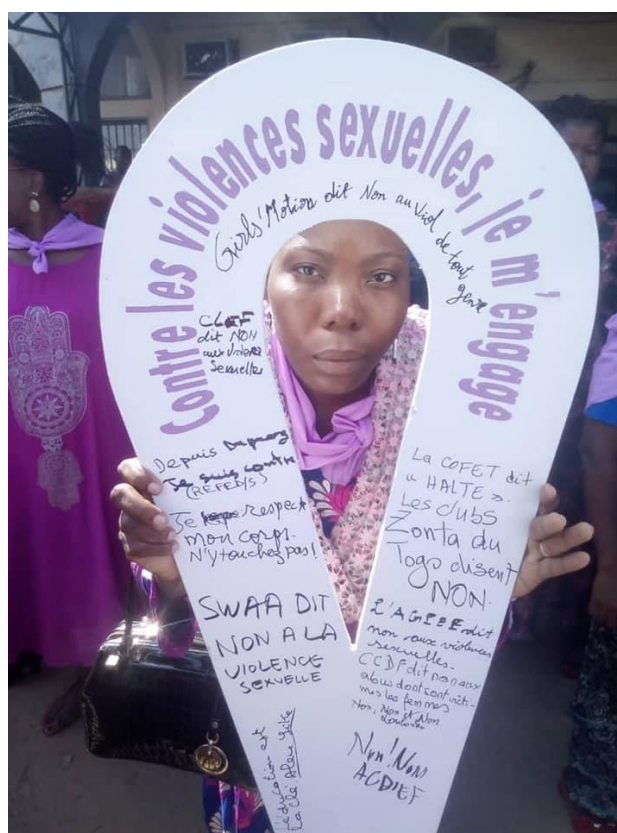 Contre les violences sexuelles, je m'engage
Girls' Motion dit Non au Viol de tout genre
CLEF
dit NON
aux Violences
Sexuelles
Depuis
Je suis contre
(REFEDS)
Je respect
mon corps.
N'y touchez pas!
SWAA DIT
NON A LA
VIOLENCE
SEXUELLE
l'éducation est
La Clé
La COFET dit
" HALTE ".
Les clubs
Zonta du
Togo disent
NON.
dit
non aux violences
sexuelles.
CCDF dit non aux
abus dont sont victi-
mes les femmes
Non, Non et Non
Non! Non
ACDIEF